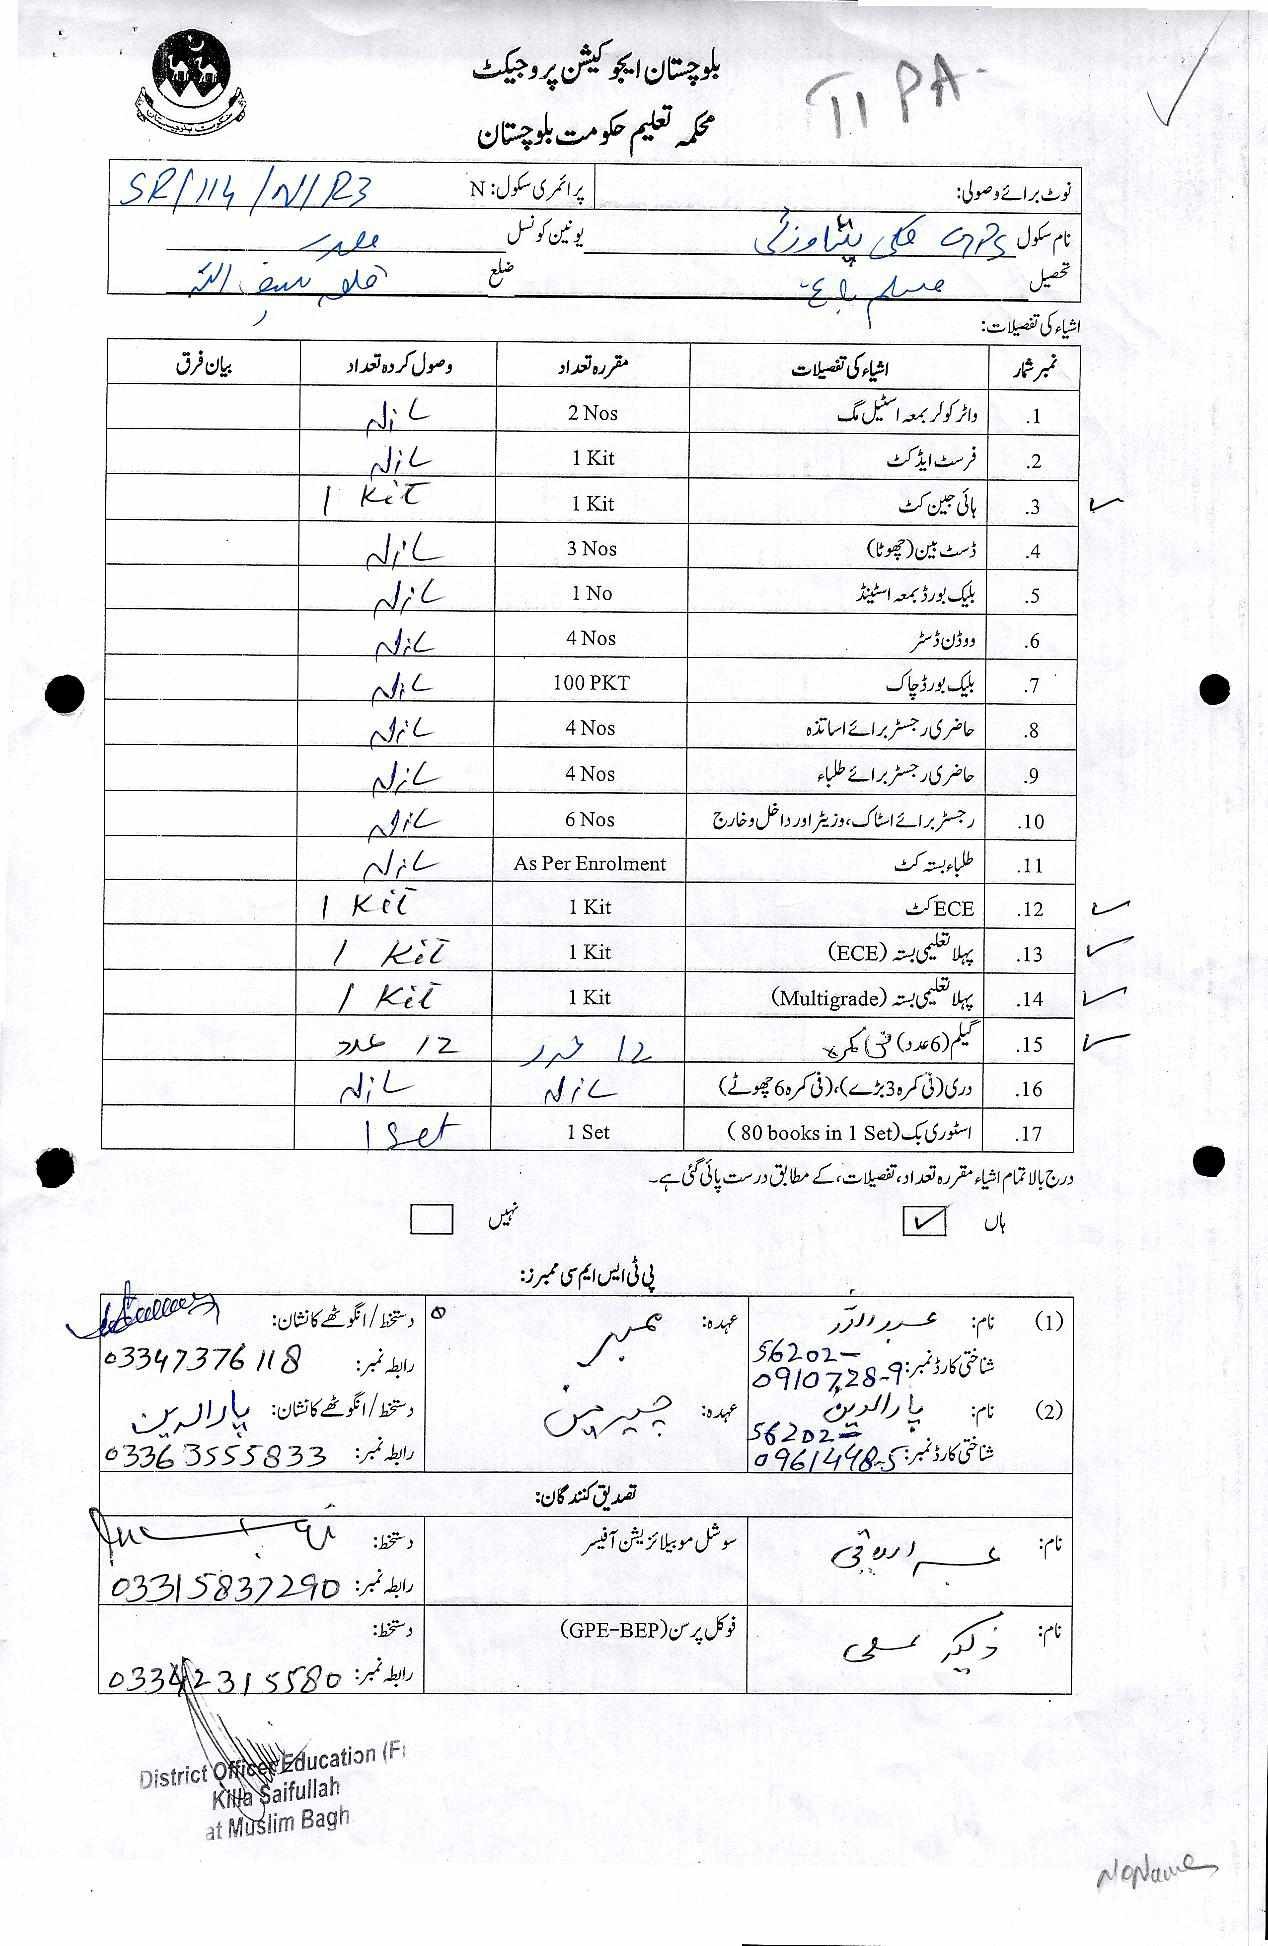 بلوچستان ایجوکیشن پروجیکٹ
TI PA
محکمہ تعلیم حکومت بلوچستان
نوٹ برائے وصولی: پرائمری سکول: N SR/114/N/R3
نام سکول GPS کلی یونین کونسل
تحصیل مسلم باغ ضلع قلعہ سیف اللہ
اشیاء کی تفصیلات:
نمبر شمار اشیاء کی تفصیلات مقررہ تعداد وصول کردہ تعداد بیان فرق
1. واٹر کولر بمعہ اسٹیل مگ 2 Nos Nil
2. فرسٹ ایڈ کٹ 1 Kit Nil
3. ہائی جین کٹ 1 Kit 1 Kit
4. ڈسٹ بین (چھوٹا) 3 Nos Nil
5. بلیک بورڈ بمعہ اسٹینڈ 1 No Nil
6. ووڈن ڈسٹر 4 Nos Nil
7. بلیک بورڈ چاک 100 PKT Nil
8. حاضری رجسٹر برائے اساتذہ 4 Nos Nil
9. حاضری رجسٹر برائے طلباء 4 Nos Nil
10. رجسٹر برائے اسٹاک، وزیٹر اور داخل و خارج 6 Nos Nil
11. طلباء بستہ کٹ As Per Enrolment Nil
12. ECE کٹ 1 Kit 1 Kit
13. پہلا تعلیمی بستہ (ECE) 1 Kit 1 Kit
14. پہلا تعلیمی بستہ (Multigrade) 1 Kit 1 Kit
15. گیلم (6 عدد) فی کمرہ 12 عدد 12 عدد
16. دری (فی کمرہ 3 بڑے)، (فی کمرہ 6 چھوٹے) Nil Nil
17. اسٹوری بک (80 books in 1 Set) 1 Set 1 Set
درج بالا تمام اشیاء مقررہ تعداد، تفصیلات، کے مطابق درست پائی گئی ہے۔
ہاں نہیں
پی ٹی ایس ایم سی ممبرز:
(1) نام: عہدہ: ممبر دستخط/انگوٹھے کا نشان:
شناختی کارڈ نمبر: 56202-0910728-9 رابطہ نمبر: 03347376118
(2) نام: پارالدین عہدہ: چیرمین دستخط/انگوٹھے کا نشان: پارالدین
شناختی کارڈ نمبر: 56202-0961498-5 رابطہ نمبر: 03363555833
تصدیق کنندگان:
نام: سوشل موبیلائزیشن آفیسر دستخط:
رابطہ نمبر: 03315837290
نام: فوکل پرسن (GPE-BEP) دستخط:
رابطہ نمبر: 03342315580
District Officer Education (F
Killa Saifullah
at Muslim Bagh
NoName